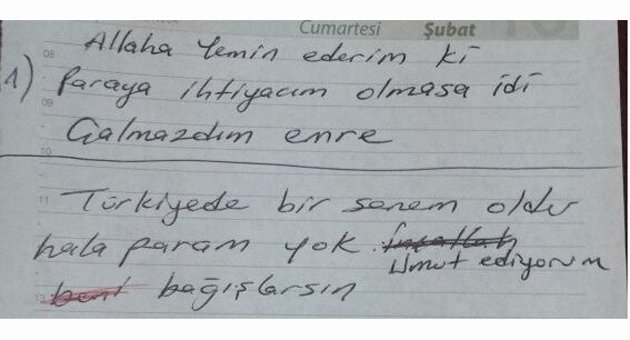 Cumartesi Şubat
08
Allaha Yemin ederim ki
1) Paraya ihtiyacım olmasa idi
09
Çalmazdım emre
10
11 Türkiyede bir senem oldu
hala param yok. İnşallah
Umut ediyorum
13 beni bağışlarsın